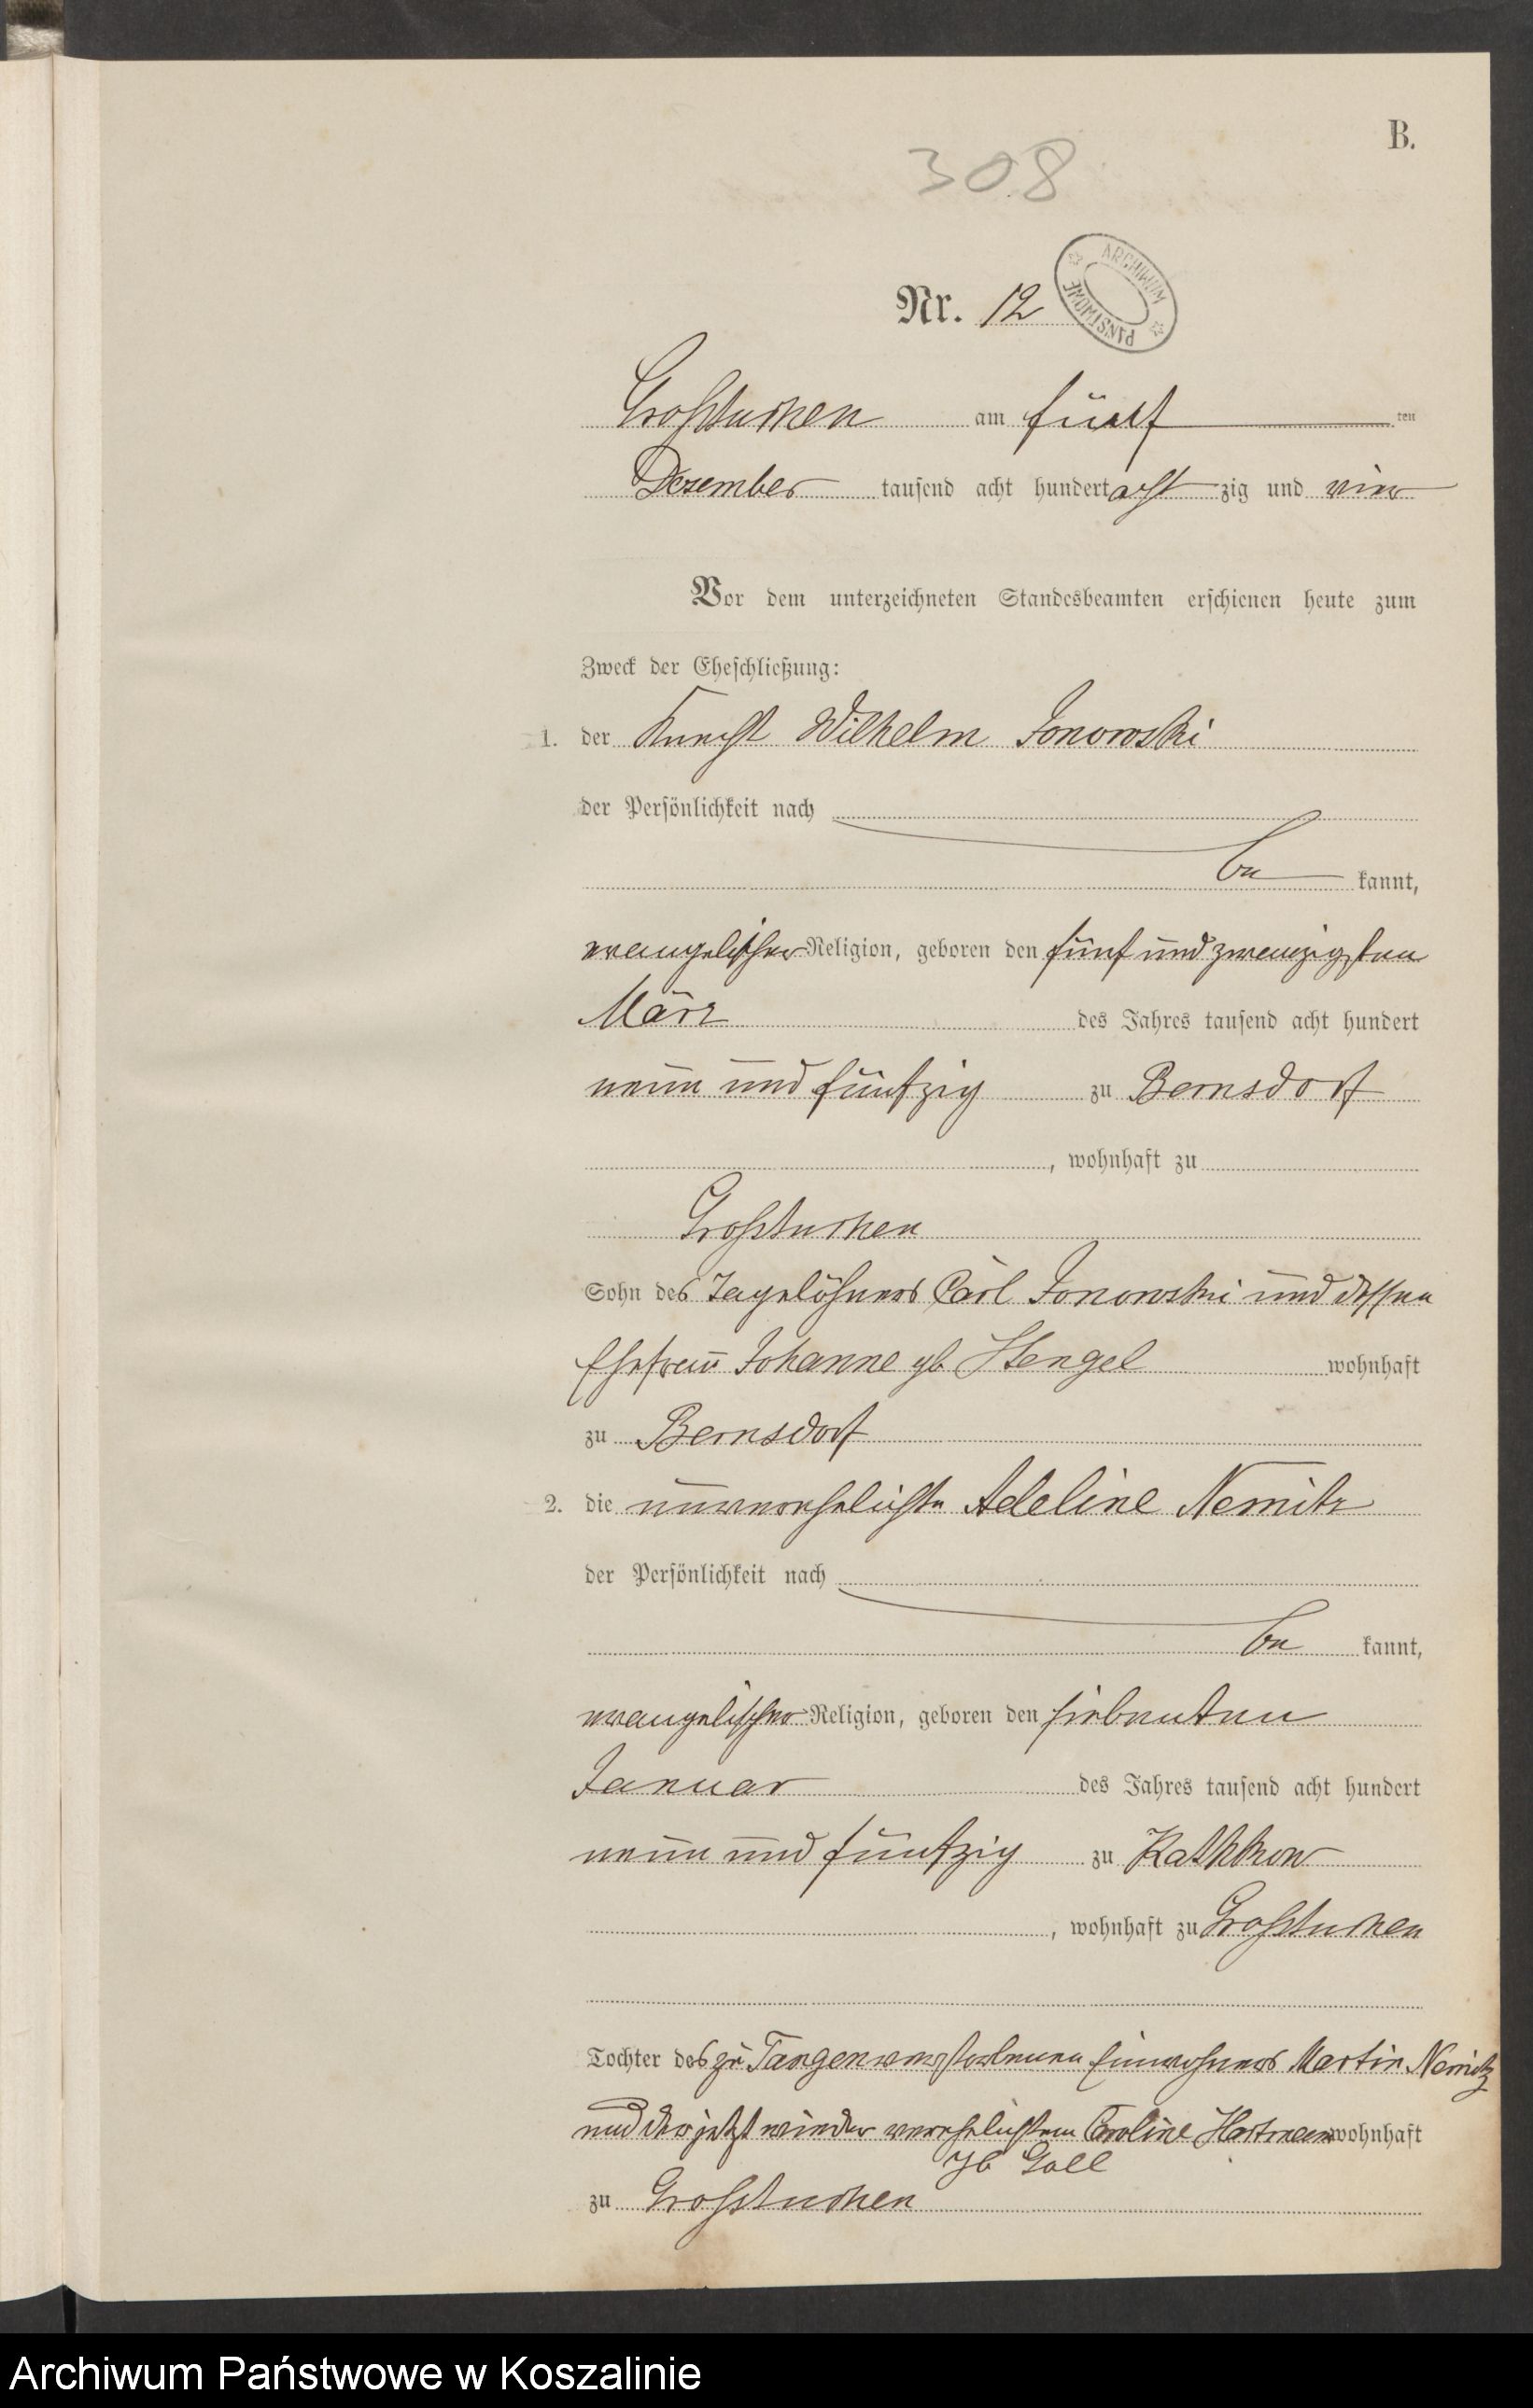 B.
308
Nr. 12
ARCHIWUM PAŃSTWOWE
Großtuchen am fünf ten
Dezember tausend acht hundert acht zig und vier
Vor dem unterzeichneten Standesbeamten erschienen heute zum
Zweck der Eheschließung:
1. der Knecht Wilhelm Jonowski
der Persönlichkeit nach
be kannt,
evangelischer Religion, geboren den fünf und zwanzigsten
März des Jahres tausend acht hundert
neun und fünfzig zu Bernsdorf
, wohnhaft zu
Großtuchen
Sohn des Tagelöhners Carl Jonowski und dessen
Ehefrau Johanne gb Stengel wohnhaft
zu Bernsdorf
2. die unverehelichte Adeline Nemitz
der Persönlichkeit nach
be kannt,
evangelischer Religion, geboren den siebenten
Januar des Jahres tausend acht hundert
neun und fünfzig zu Kathkow
, wohnhaft zu Großtuchen
Tochter des zu Tangen verstorbenen Einwohners Martin Nemitz
und der jetzt wieder verehelichten Caroline Hartmann wohnhaft
gb Goll
zu Großtuchen
Archiwum Państwowe w Koszalinie